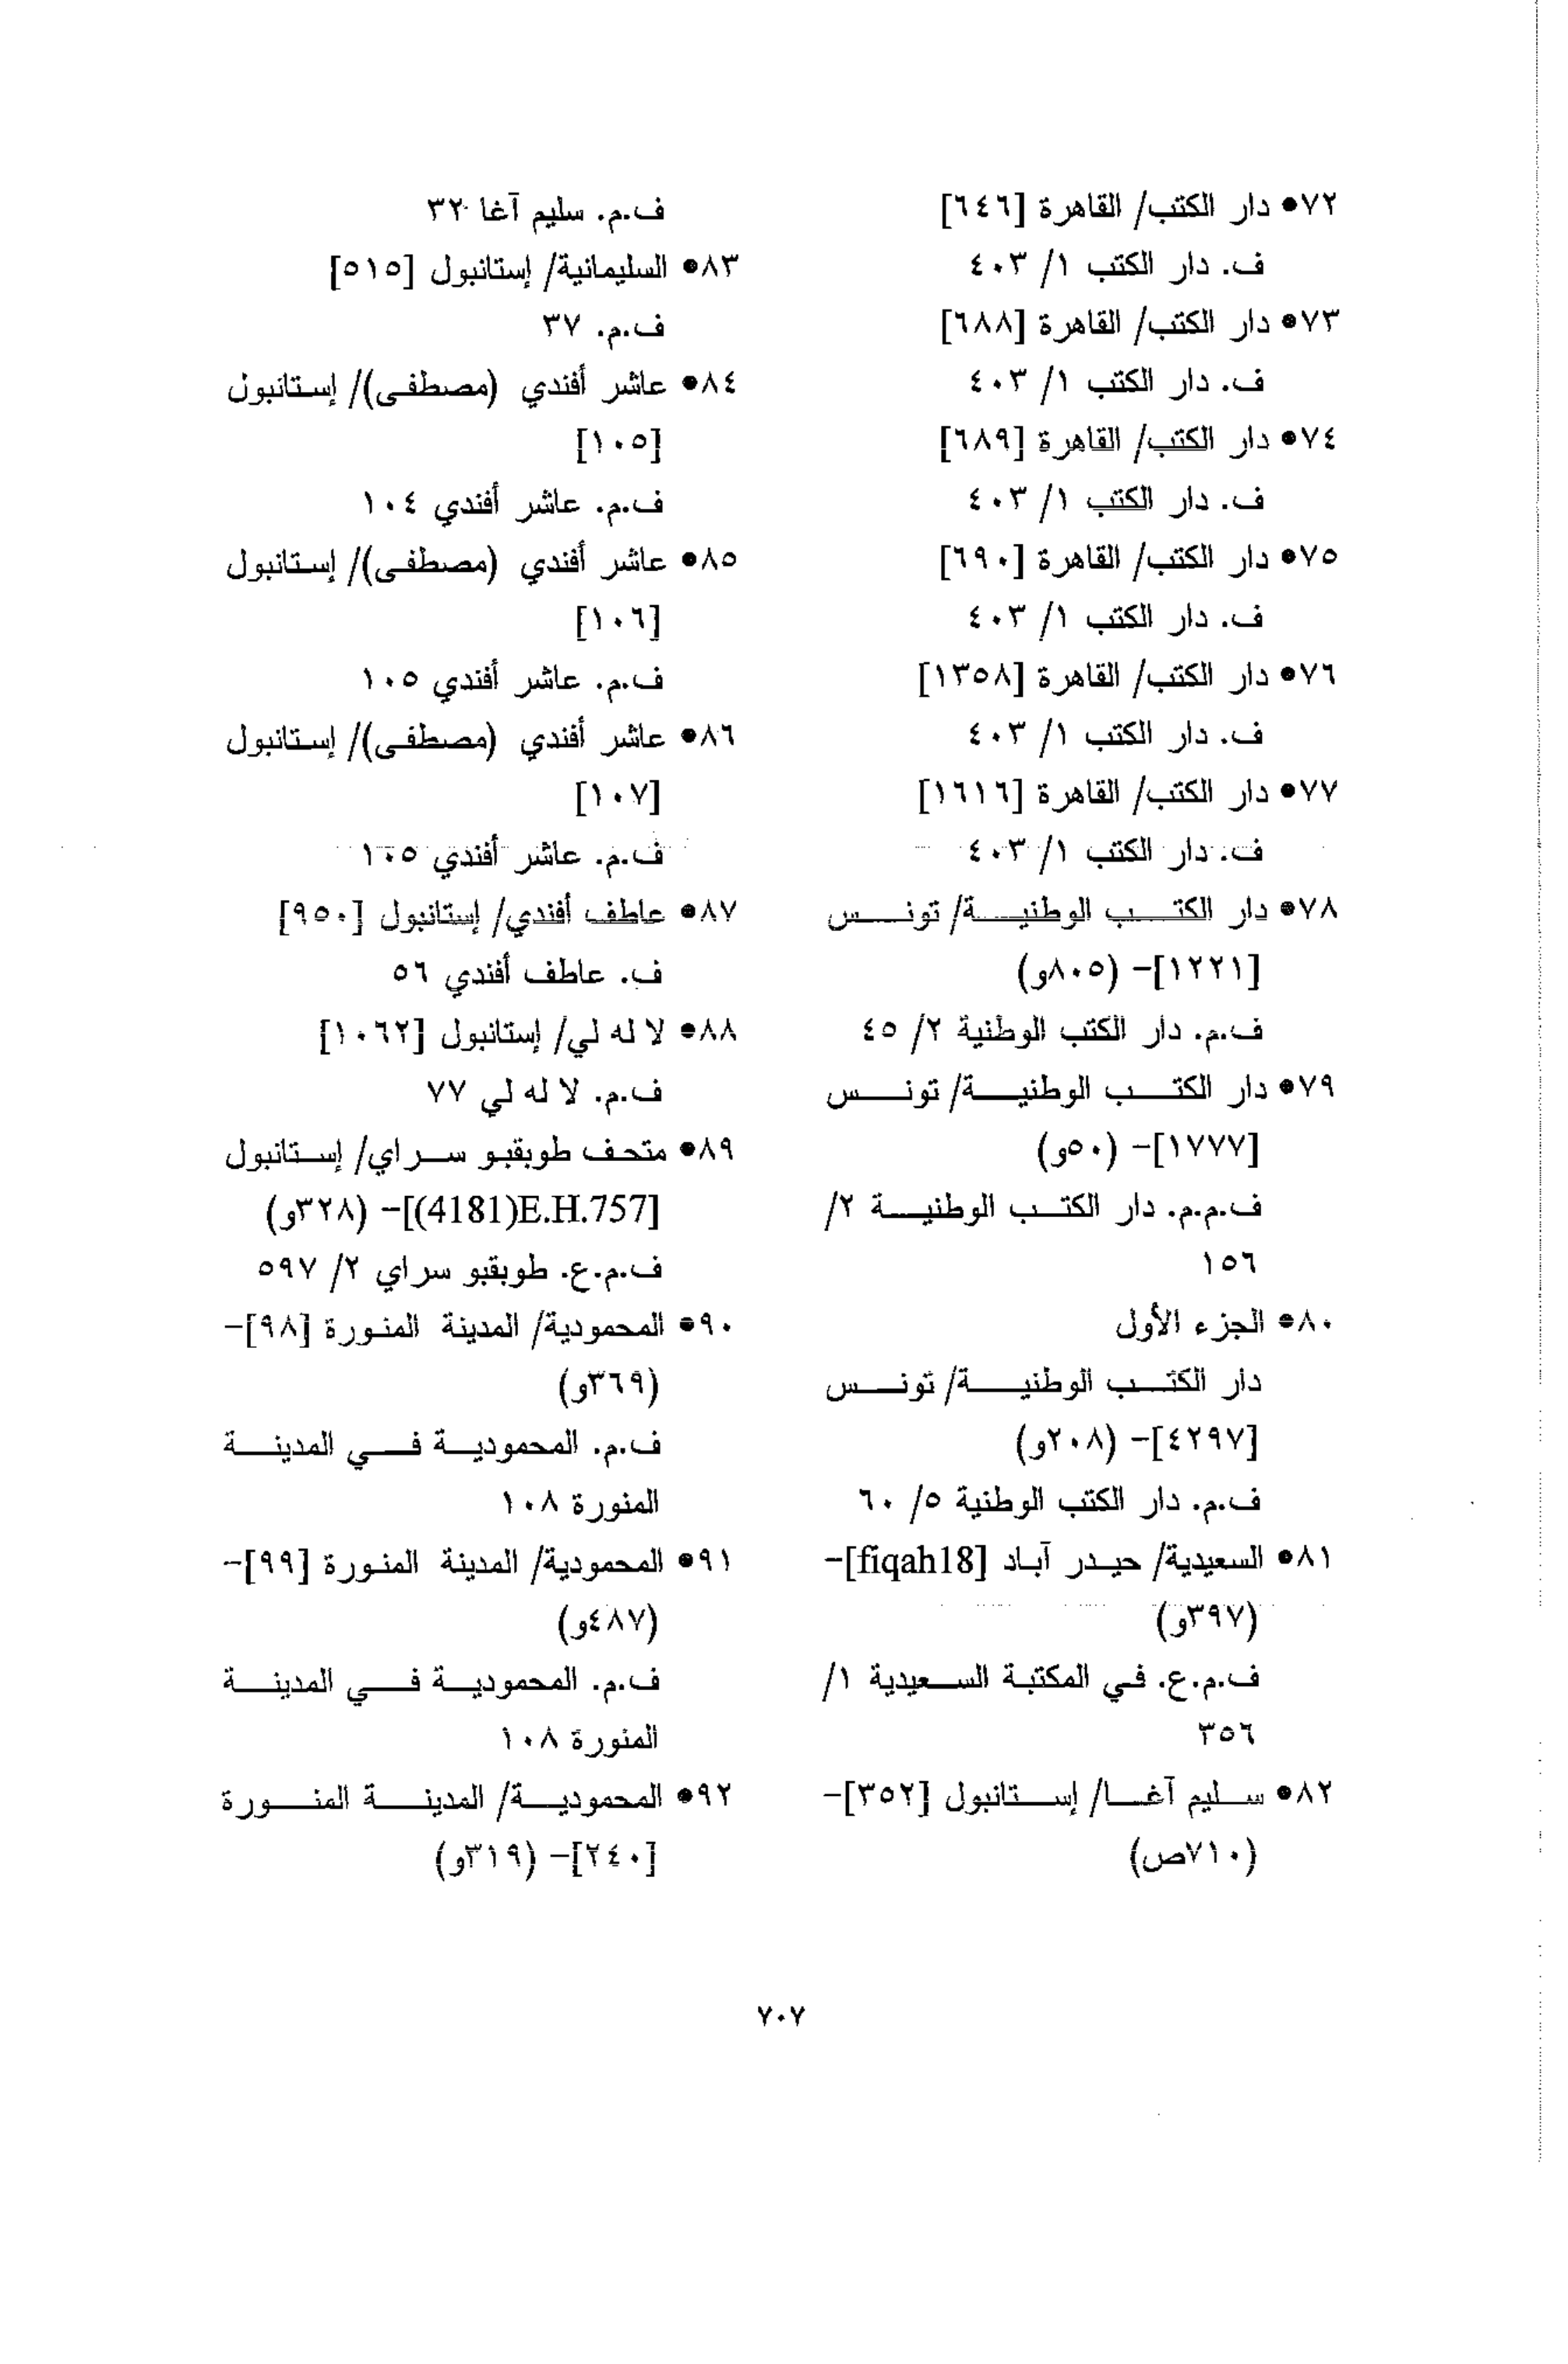 ٧٢● دار الكتب/ القاهرة [٦٤٦]
ف. دار الكتب ١/ ٤٠٣
٧٣● دار الكتب/ القاهرة [٦٨٨]
ف. دار الكتب ١/ ٤٠٣
٧٤● دار الكتب/ القاهرة [٦٨٩]
ف. دار الكتب ١/ ٤٠٣
٧٥● دار الكتب/ القاهرة [٦٩٠]
ف. دار الكتب ١/ ٤٠٣
٧٦● دار الكتب/ القاهرة [١٣٥٨]
ف. دار الكتب ١/ ٤٠٣
٧٧● دار الكتب/ القاهرة [١٦١٦]
ف. دار الكتب ١/ ٤٠٣
٧٨● دار الكتب الوطنية/ تونس
[١٢٢١]- (٨٠٥و)
ف.م. دار الكتب الوطنية ٢/ ٤٥
٧٩● دار الكتب الوطنية/ تونس
[١٧٧٧]- (٥٠و)
ف.م.م. دار الكتب الوطنية ٢/
١٥٦
٨٠● الجزء الأول
دار الكتب الوطنية/ تونس
[٤٢٩٧]- (٢٠٨و)
ف.م. دار الكتب الوطنية ٥/ ٦٠
٨١● السعيدية/ حيدر آباد [fiqah18]-
(٣٩٧و)
ف.م.ع. في المكتبة السعيدية ١/
٣٥٦
٨٢● سليم آغا/ إستانبول [٣٥٢]-
(٧١٠ص)
ف.م. سليم آغا ٣٢
٨٣● السليمانية/ إستانبول [٥١٥]
ف.م. ٣٧
٨٤● عاشر أفندي (مصطفى)/ إستانبول
[١٠٥]
ف.م. عاشر أفندي ١٠٤
٨٥● عاشر أفندي (مصطفى)/ إستانبول
[١٠٦]
ف.م. عاشر أفندي ١٠٥
٨٦● عاشر أفندي (مصطفى)/ إستانبول
[١٠٧]
ف.م. عاشر أفندي ١٠٥
٨٧● عاطف أفندي/ إستانبول [٩٥٠]
ف. عاطف أفندي ٥٦
٨٨● لا له لي/ إستانبول [١٠٦٢]
ف.م. لا له لي ٧٧
٨٩● متحف طوبقبو سراي/ إستانبول
[E.H.757(4181)]- (٣٢٨و)
ف.م.ع. طوبقبو سراي ٢/ ٥٩٧
٩٠● المحمودية/ المدينة المنورة [٩٨]-
(٣٦٩و)
ف.م. المحمودية في المدينة
المنورة ١٠٨
٩١● المحمودية/ المدينة المنورة [٩٩]-
(٤٨٧و)
ف.م. المحمودية في المدينة
المنورة ١٠٨
٩٢● المحمودية/ المدينة المنورة
[٢٤٠]- (٣١٩و)
٧٠٧